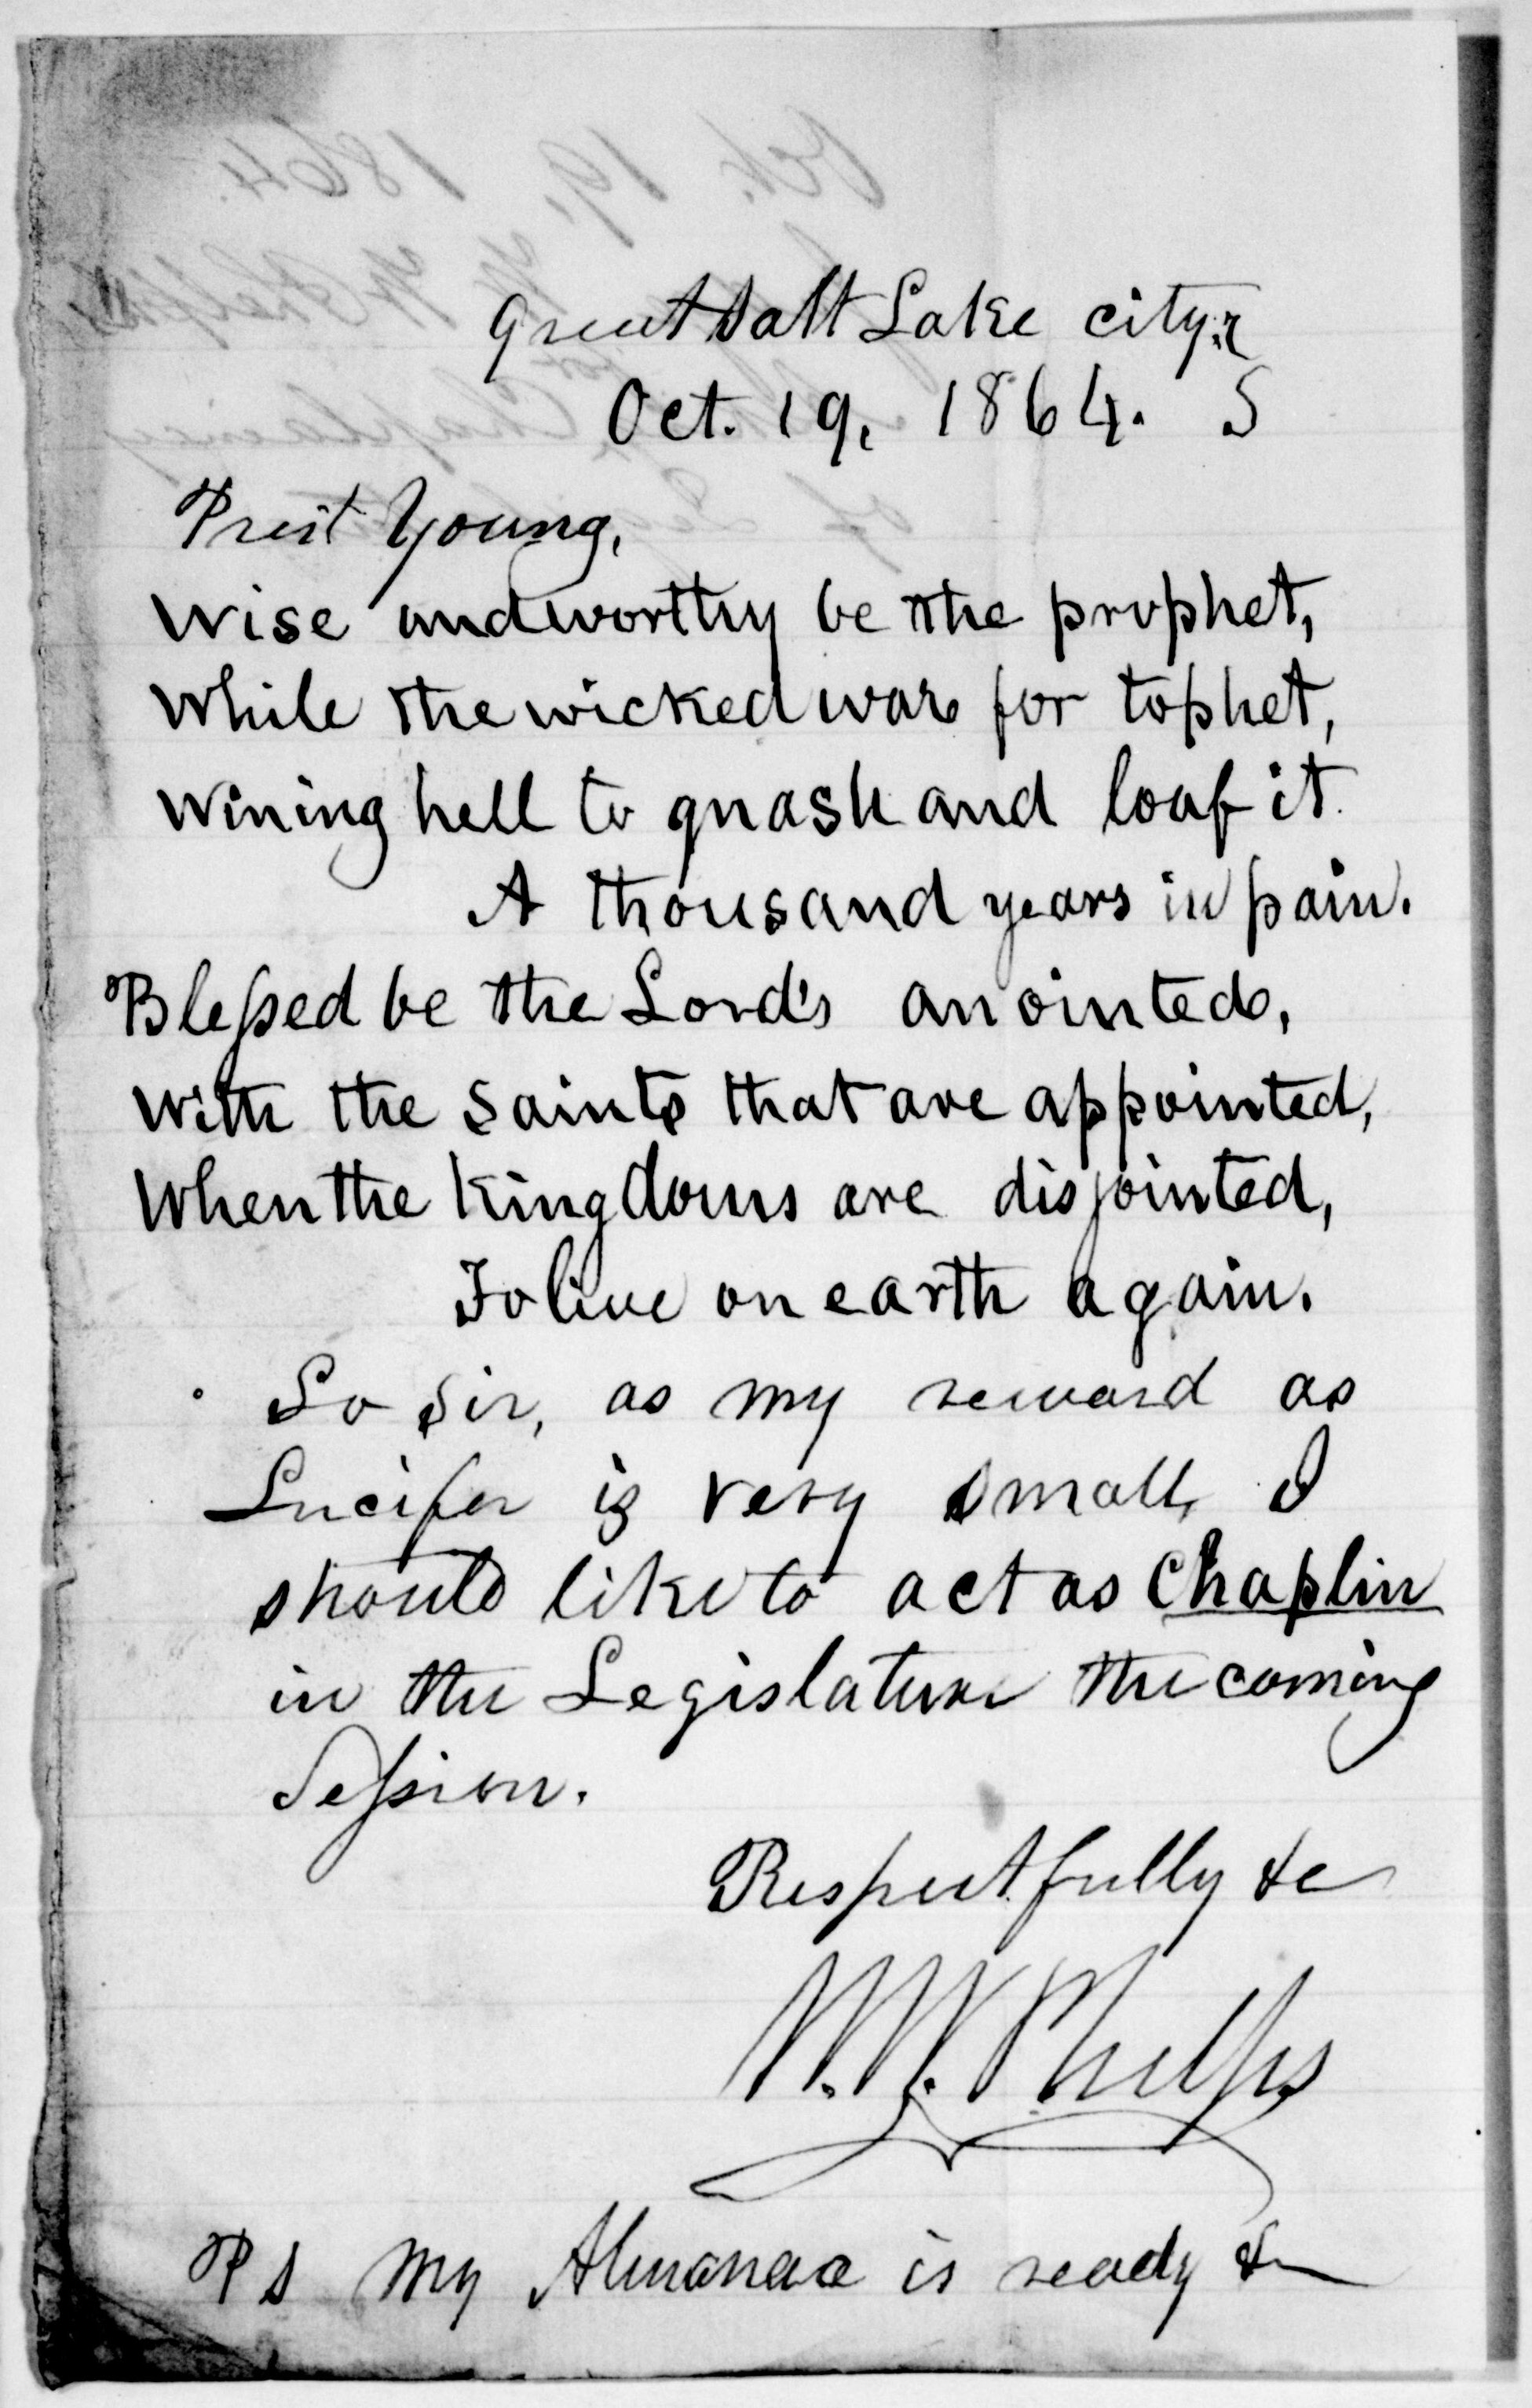 Great Salt Lake city,
Oct. 19, 1864.
Prest Young,
Wise and worthy be the prophet,
While the wicked war for tophet,
Wining hell to gnash and loaf it
A thousand years in pain.
Blessed be the Lord's anointed,
With the saints that are appointed,
When the kingdoms are disjointed,
To live on earth again.
So sir, as my reward as
Lucifer is very small, I
should like to act as Chaplin
in the Legislature the coming
Session.
Respectfully &c
W. W. Phelps
P S My Almanac is ready &c